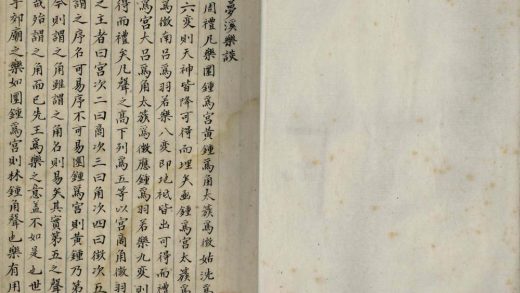 夢溪樂談
周禮凡樂圜鍾爲宮黃鍾爲角太蔟爲徵姑洗爲
六變則天神皆降可得而理矣函鍾爲宮太蔟爲
爲徵南呂爲羽若樂八變即地祇皆出可得而禮
爲宮大呂爲角太蔟爲徵應鍾爲羽若樂九變則
得而禮矣凡聲之高下列爲五等以宮商角徵羽
之主者曰宮次二曰商次三曰角次四曰徵次五
謂之序名可易序不可易圜鍾爲宮則黃鍾乃第
今則謂之角雖謂之角名則易矣其實第五之聲
哉殆謂之角而已先王爲樂之意蓋不如是也世
乎郊廟之樂如圜鍾爲宮則林鍾角聲也樂有用